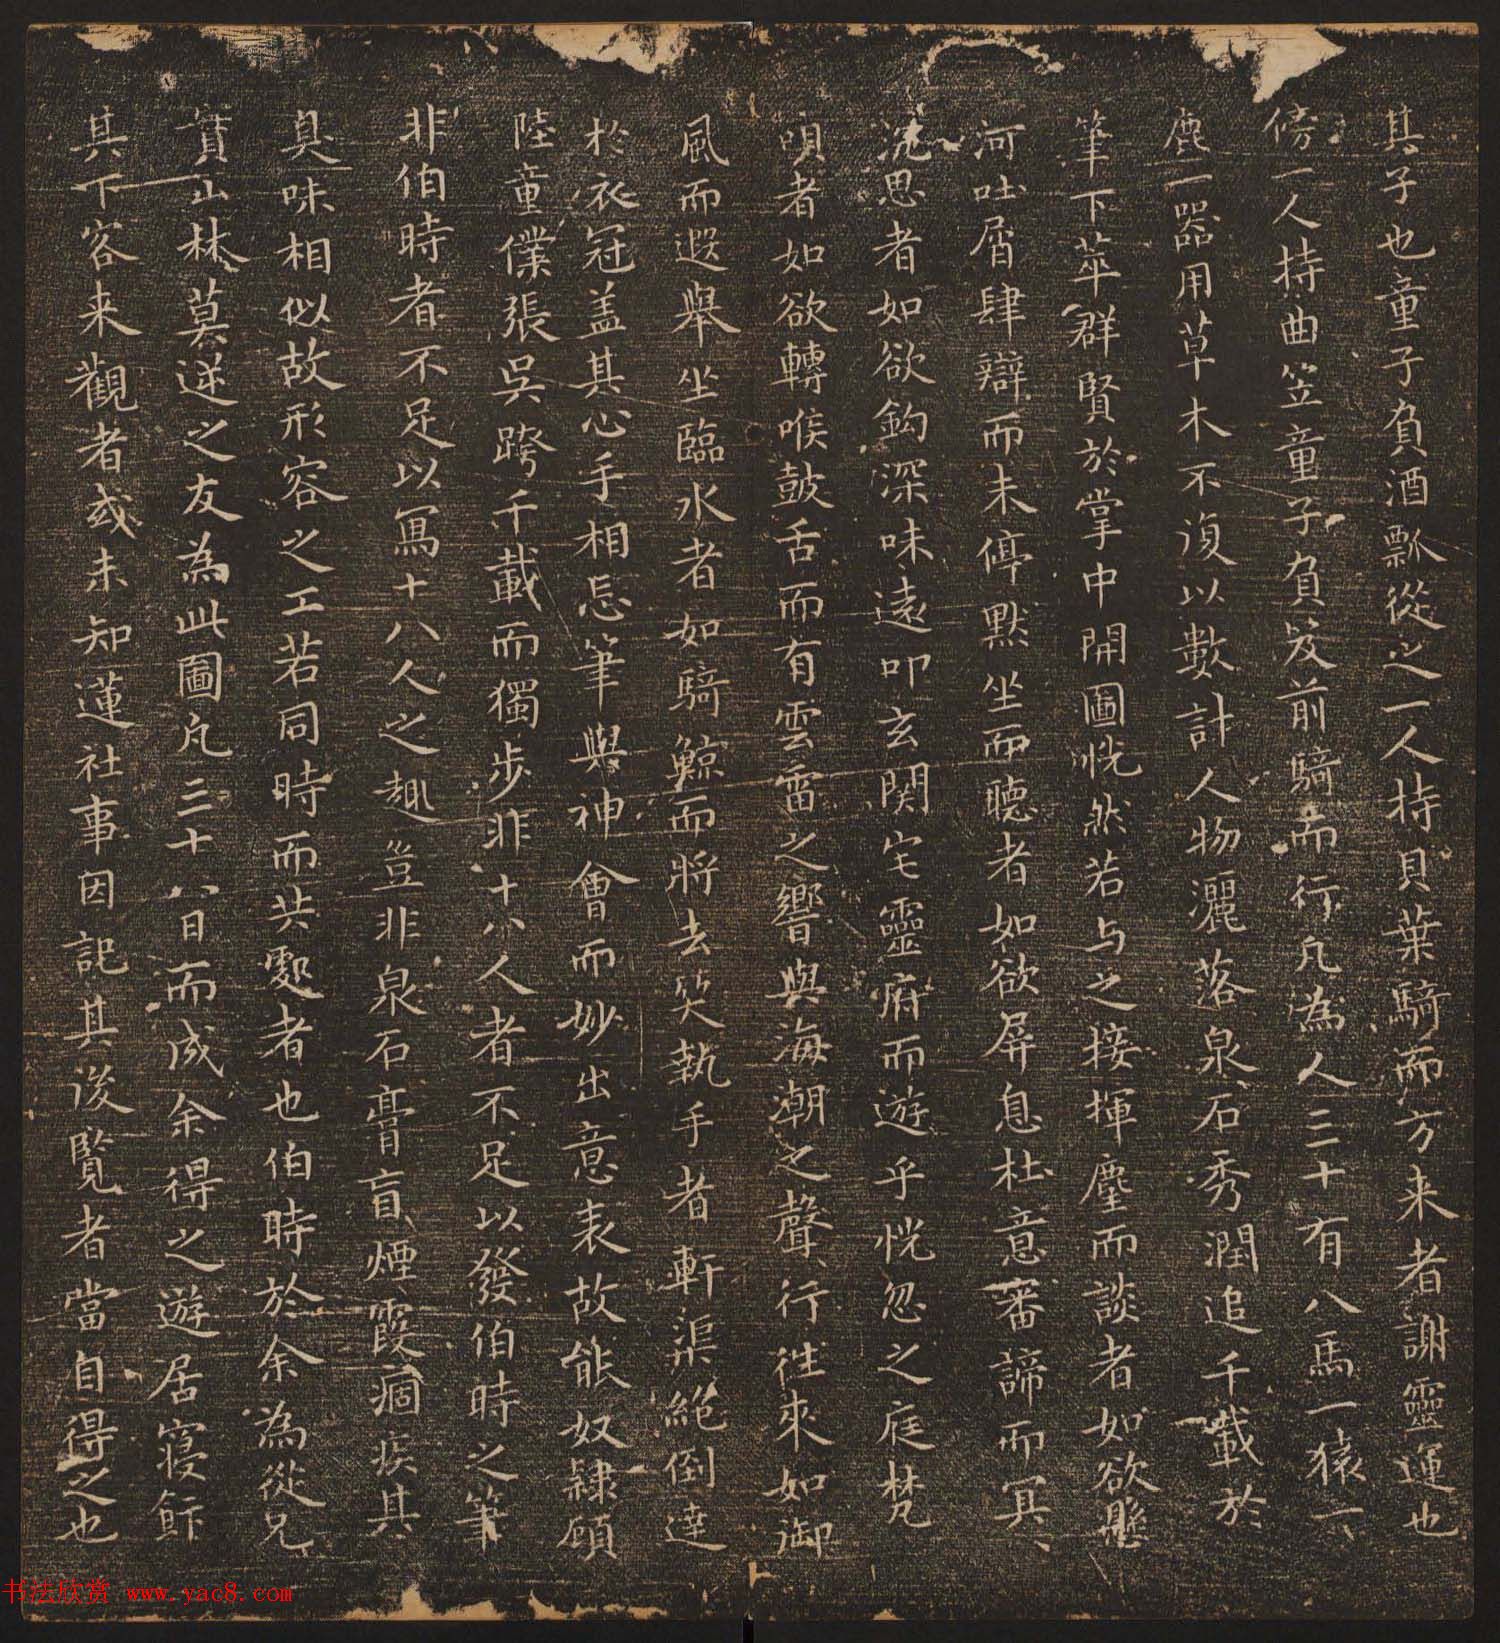 其子也童子負酒瓢從之一人持貝葉騎而方来者謝靈運也
傍一人持曲笠童子負笈前騎而行凡為人三十有八馬一猿一
鹿一器用草木不復以數計人物灑落泉石秀潤追千載於
筆下萃群賢於掌中開圖恍然若与之接揮麈而談者如欲懸
河吐屑肆辯而未停默坐而聽者如欲屏息杜意審諦而冥
思者如欲鈎深味遠叩玄関宅靈府而遊乎恍忽之庭梵
唄者如欲轉喉鼓舌而有雲雷之響與海潮之聲行徃來如御
風而遐舉坐臨水者如騎鯨而將去笑執手者軒渠絕倒達
於衣冠盖其心手相忘筆與神會而妙出意表故能奴隸顧
陸童僕張吳跨千載而獨步非十八人者不足以發伯時之筆
非伯時者不足以寫十八人之趣豈非泉石膏肓煙霞痼疾其
臭味相似故形容之工若同時而共處者也伯時於余為從兄
實山林莫逆之友為此圖凡三十八日而成余得之遊居寢飯
其下客来觀者或未知蓮社事因記其後覽者當自得之也
书法欣赏 www.yac8.com